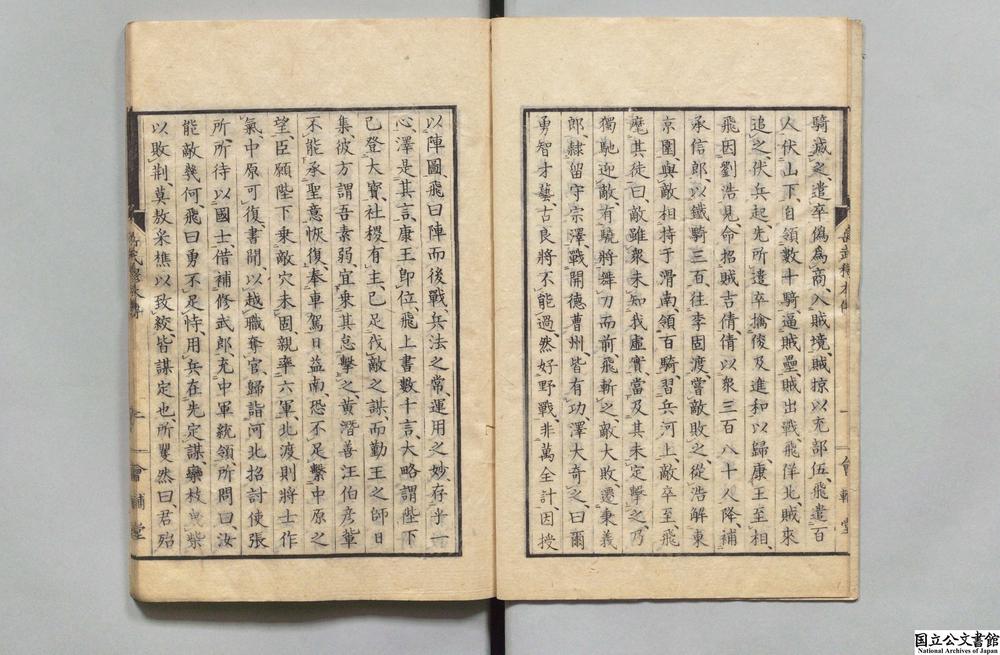 騎滅之、遣卒僞爲商、入賊境、賊掠以充部伍、飛遣百
人伏山下、自領數十騎、逼賊壘、賊出戰、飛佯北、賊來
追之、伏兵起、先所遣卒擒俊及進和以歸、康王至相、
飛因劉浩見、命招賊吉倩、倩以衆三百八十人降、補
承信郎、以鐵騎三百、往李固渡嘗敵、敗之、從浩解東
京圍、與敵相持于滑南、領百騎習兵河上、敵卒至、飛
麾其徒曰、敵雖衆、未知我虛實、當及其未定擊之、乃
獨馳迎敵、有驍將舞刀而前、飛斬之、敵大敗、遷秉義
郎、隷留守宗澤、戰開德曹州、皆有功、澤大奇之曰、爾
勇智才藝、古良將不能過、然好野戰、非萬全計、因授
以陣圖、飛曰、陣而後戰、兵法之常、運用之妙、存乎一
心、澤是其言、康王卽位、飛上書數千言、大略謂、陛下
已登大寶、社稷有主、已足伐敵之謀、而勤王之師日
集、彼方謂吾素弱、宜乘其怠擊之、黃潛善汪伯彥輩
不能承聖意恢復、奉車駕日益南、恐不足繫中原之
望、臣願陛下乘敵穴未固、親率六軍、北渡則將士作
氣、中原可復、書聞、以越職奪官歸、詣河北招討使張
所、所待以國士、借補修武郎、充中軍統領、所問曰、汝
能敵幾何、飛曰、勇不足恃、用兵在先定謀、欒枝曳柴
以敗荆、莫敖采樵以致絞、皆謀定也、所矍然曰、君殆